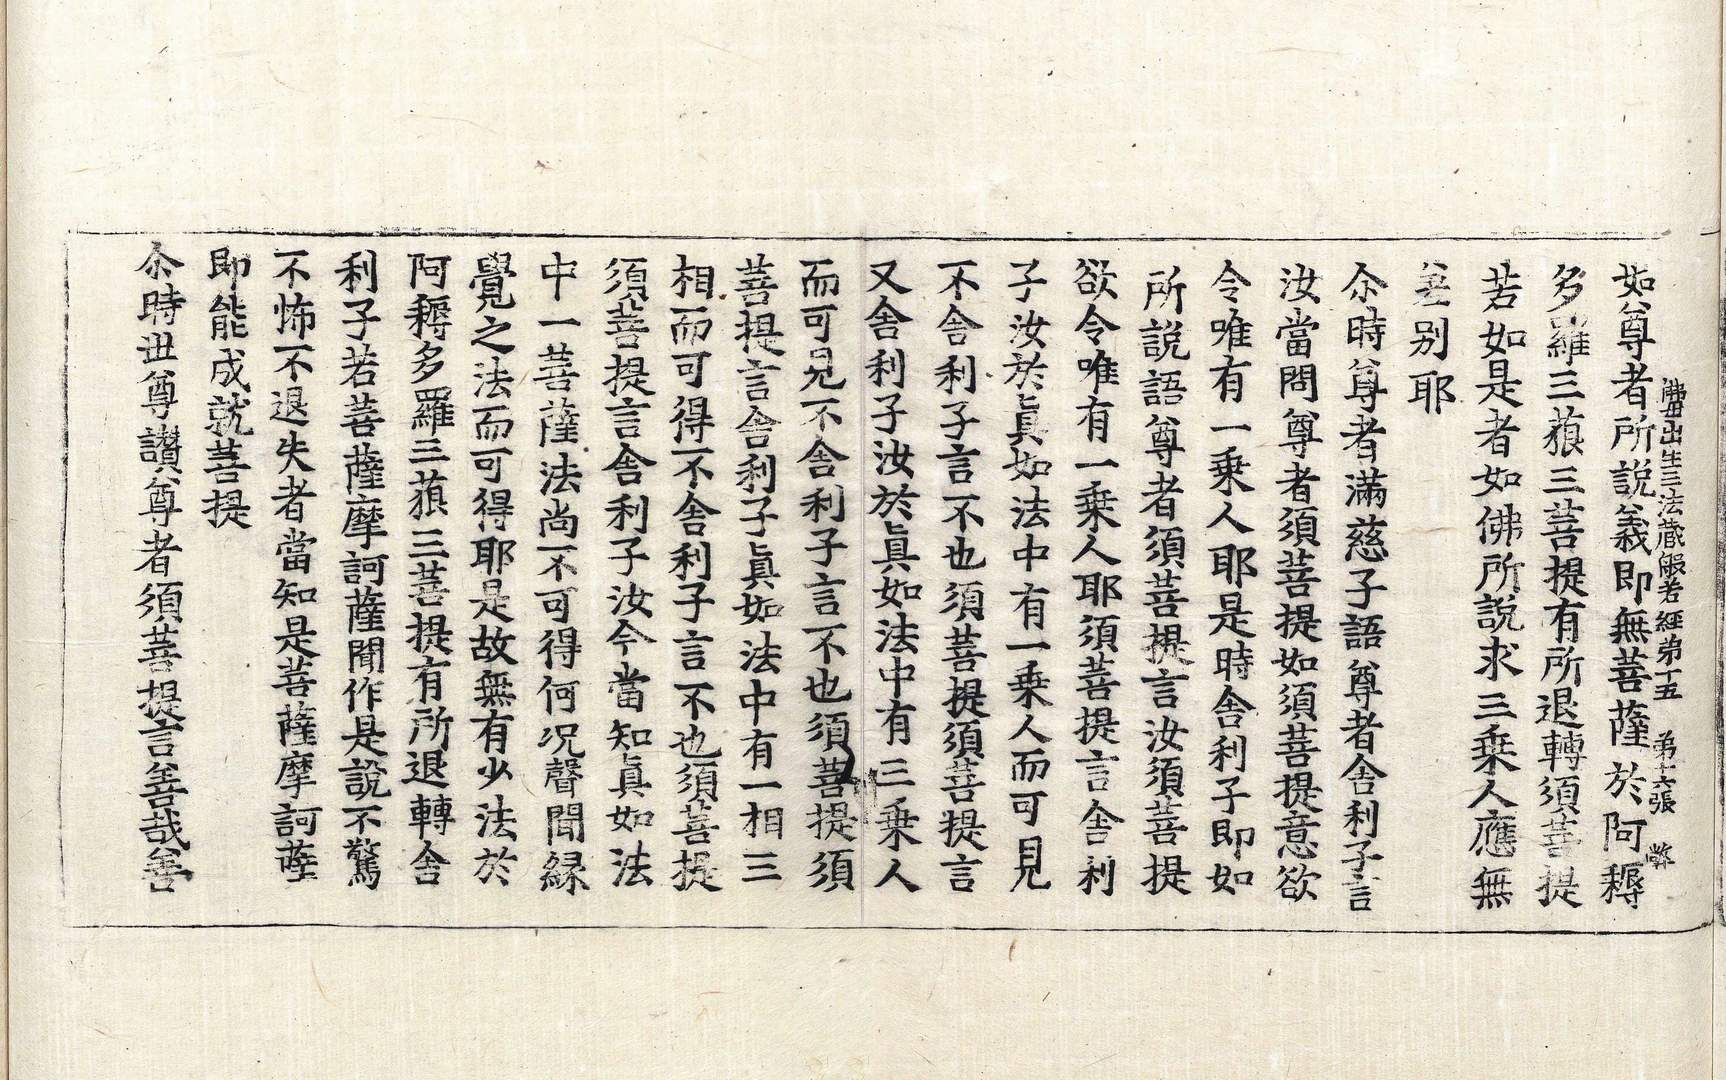 佛母出生三法藏般若經第十五　第十六張　弊
如尊者所說義即無菩薩於阿耨
多羅三藐三菩提有所退轉須菩提
若如是者如佛所說求三乗人應無
差别耶
尒時尊者滿慈子語尊者舍利子言
汝當問尊者須菩提如須菩提意欲
令唯有一乗人耶是時舍利子即如
所說語尊者須菩提言汝須菩提
欲令唯有一乗人耶須菩提言舍利
子汝於眞如法中有一乗人而可見
不舍利子言不也須菩提須菩提言
又舍利子汝於眞如法中有三乗人
而可見不舍利子言不也須菩提須
菩提言舍利子眞如法中有一相三
相而可得不舍利子言不也須菩提
須菩提言舍利子汝今當知眞如法
中一菩薩法尚不可得何况聲聞緣
覺之法而可得耶是故無有少法於
阿耨多羅三藐三菩提有所退轉舍
利子若菩薩摩訶薩聞作是說不驚
不怖不退失者當知是菩薩摩訶薩
即能成就菩提
尒時世尊讃尊者須菩提言善哉善